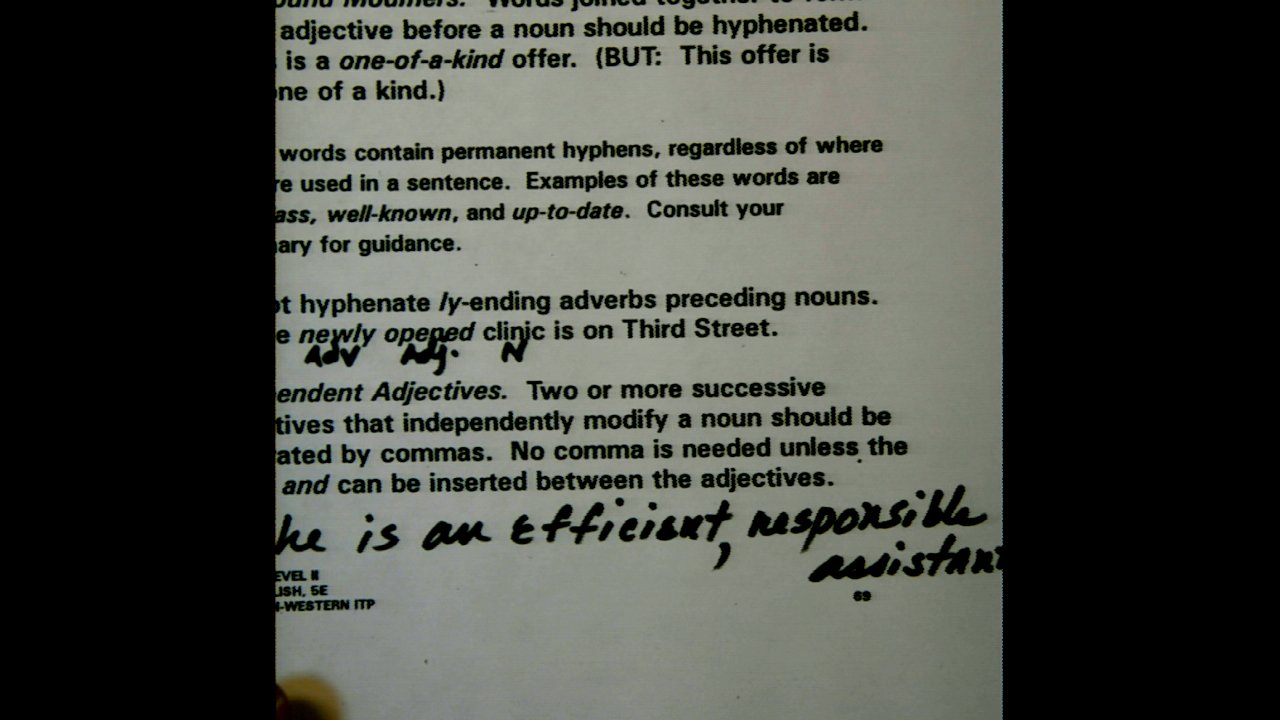 adjective before a noun should be hyphenated.
is a one-of-a-kind offer. (BUT: This offer is
ne of a kind.)
words contain permanent hyphens, regardless of where
re used in a sentence. Examples of these words are
ass, well-known, and up-to-date. Consult your
ary for guidance.
ot hyphenate ly-ending adverbs preceding nouns.
e newly opened clinic is on Third Street.
Adv Adj. N
endent Adjectives. Two or more successive
tives that independently modify a noun should be
ated by commas. No comma is needed unless the
and can be inserted between the adjectives.
he is an Efficient, responsible
assistan
EVEL II
ISH, 5E
-WESTERN ITP
69